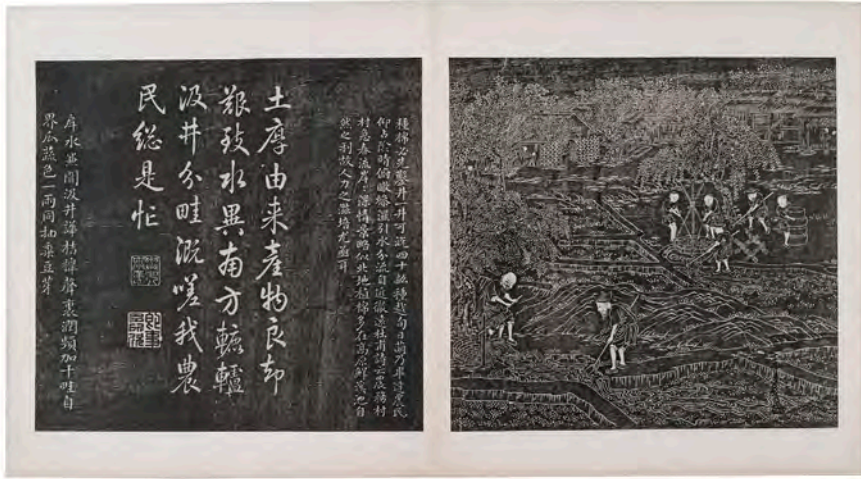 種棉必先鑿井一井可溉四十畝種越旬日萌乃毕達農民
仰占陰晴俯瞰燥濕引水分流自近徹遠杜甫詩云農務村
村急春流岸々深情景略似北地植棉多在高原鮮溪池自
然之利故人力之滋培尤亟耳
土厚由来產物良却
艱致水異南方轆轤
汲井分畦溉嗟我農
民緫是忙
戽水汲井譁桔槔聲裏潤頻加千畦自
界瓜蔬色一雨同抽桑豆芽